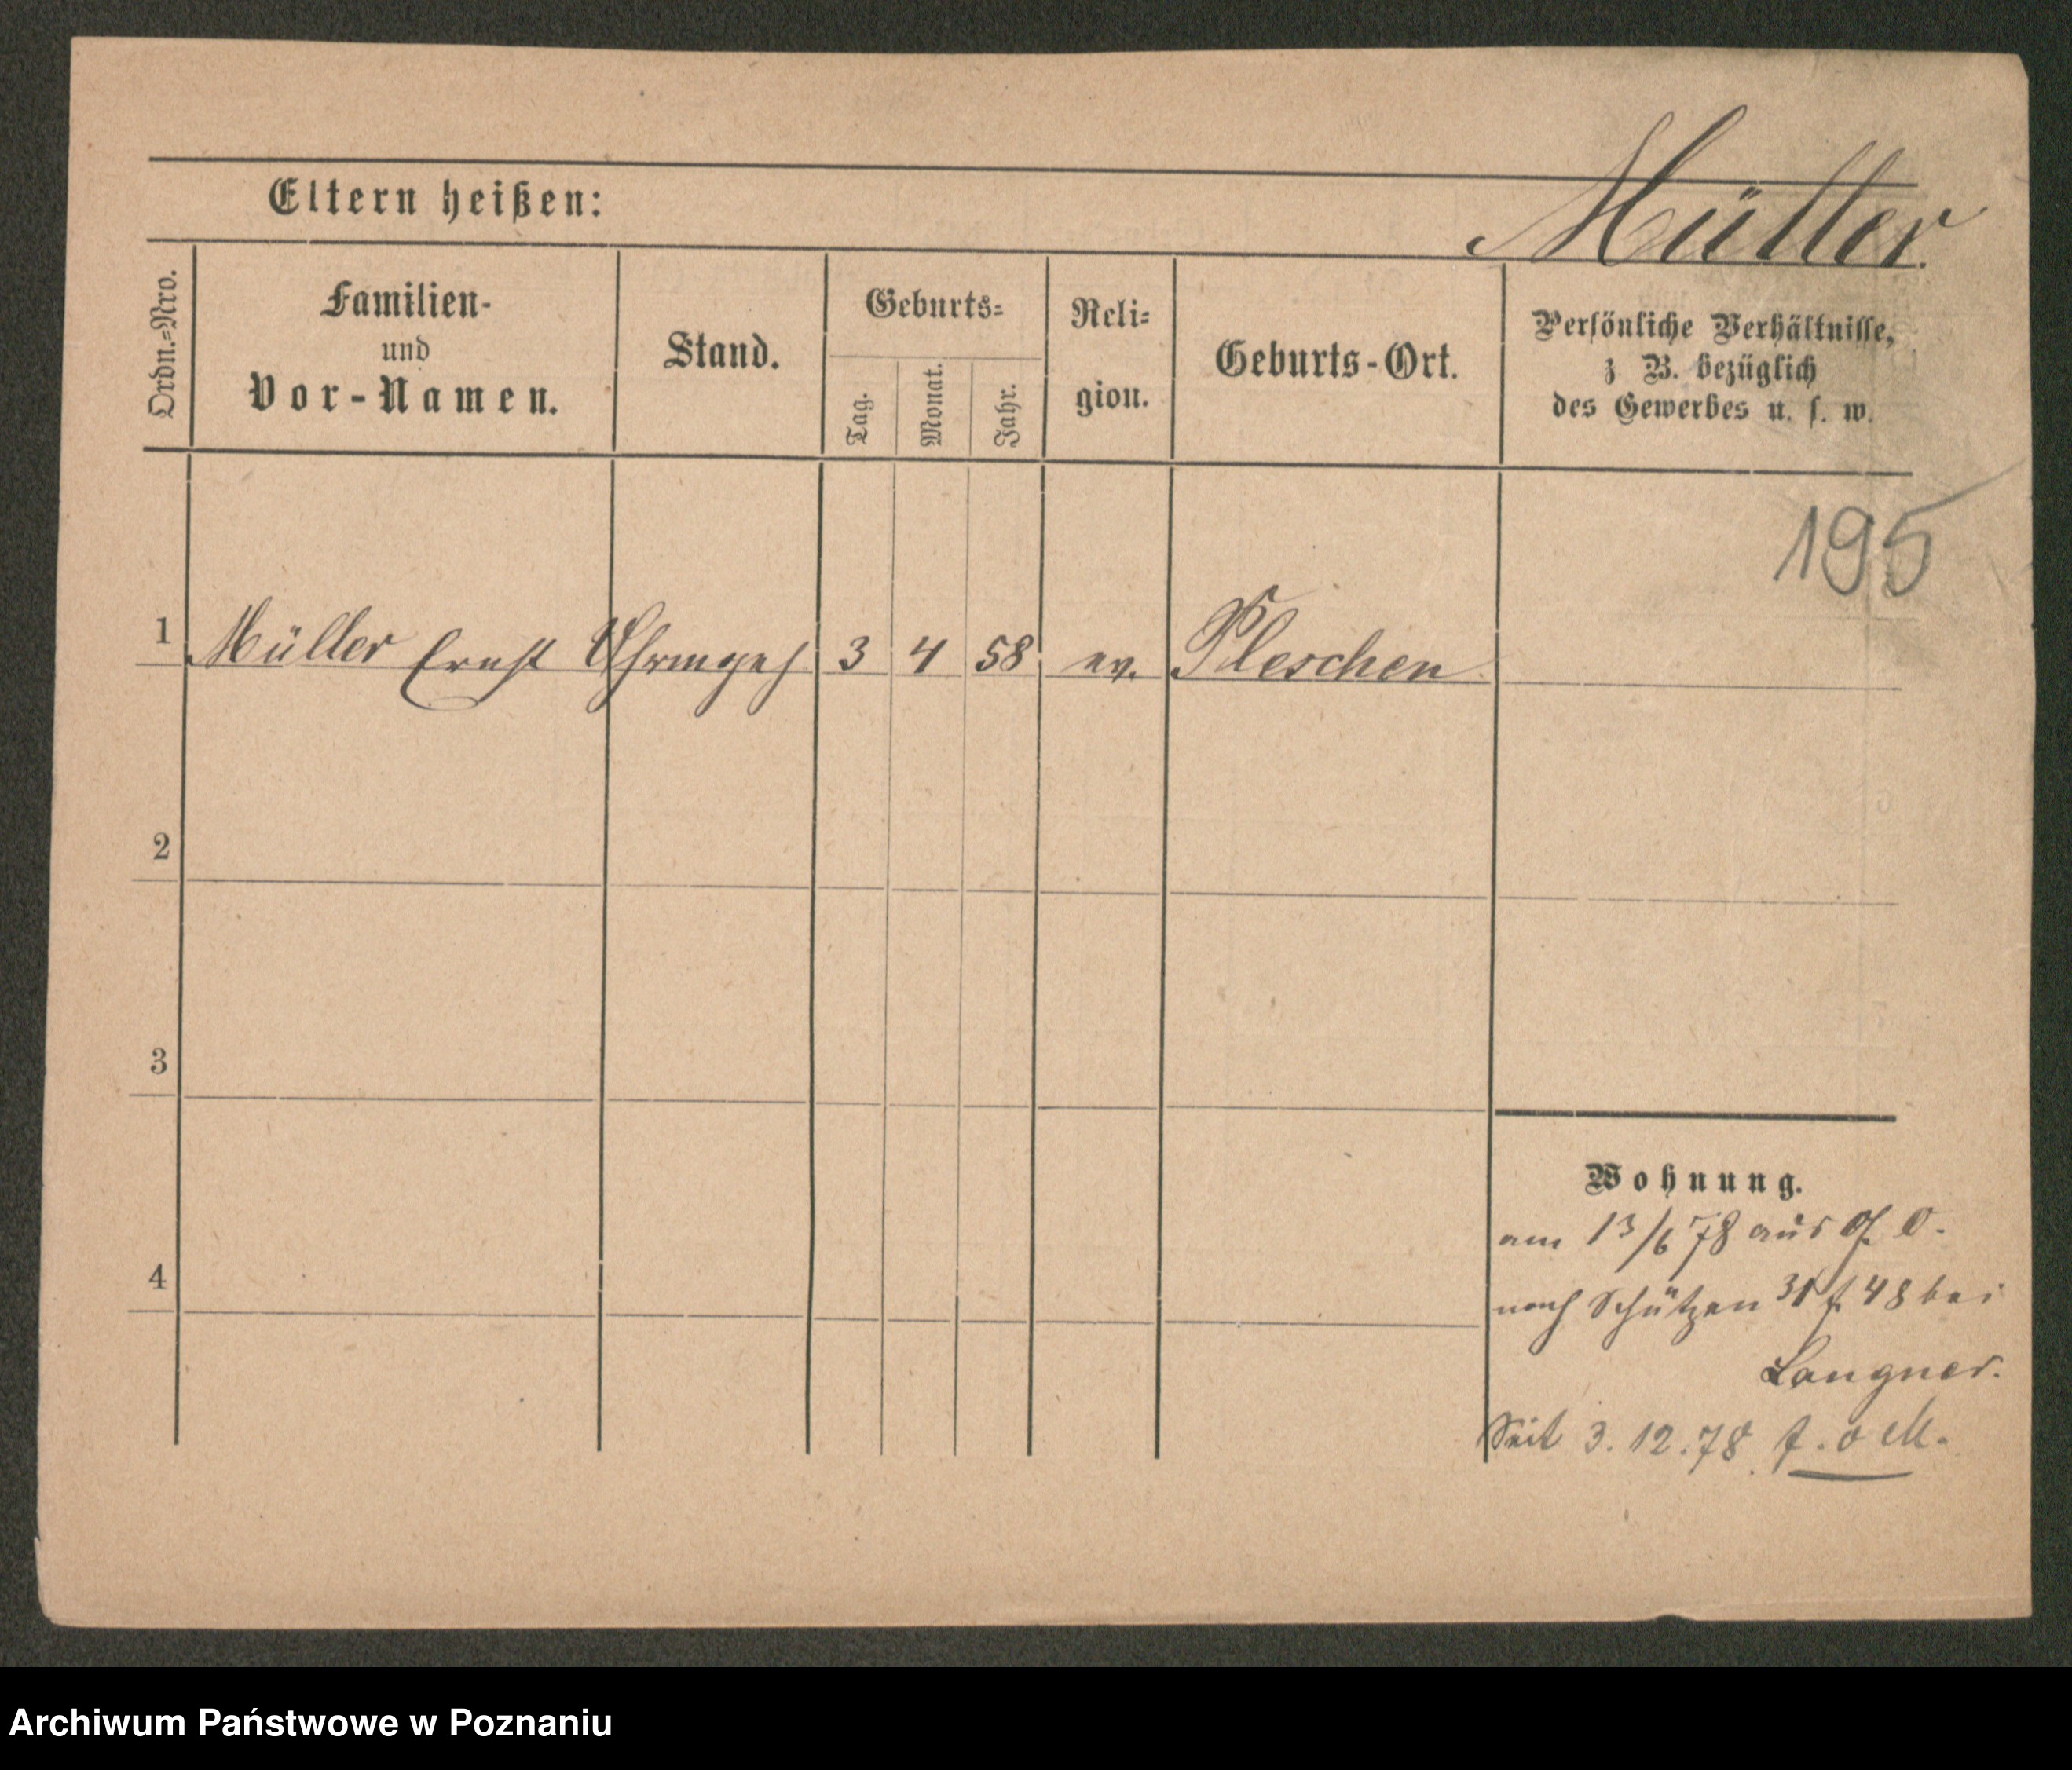 Müller
Eltern heißen:
Ordn.-Nro.
Familien-
und
Vor-Namen.
Stand.
Geburts-
Tag.
Monat.
Jahr.
Reli-
gion.
Geburts-Ort.
Persönliche Verhältnisse,
z B. bezüglich
des Gewerbes u. s. w.
195
1 Müller Ernst 3 4 58 ev. Pleschen
2
3
4
Wohnung.
am 13/6 78 aus O.
nach Schützen 31 48 bei
Langner.
Seit 3.12.78
Archiwum Państwowe w Poznaniu